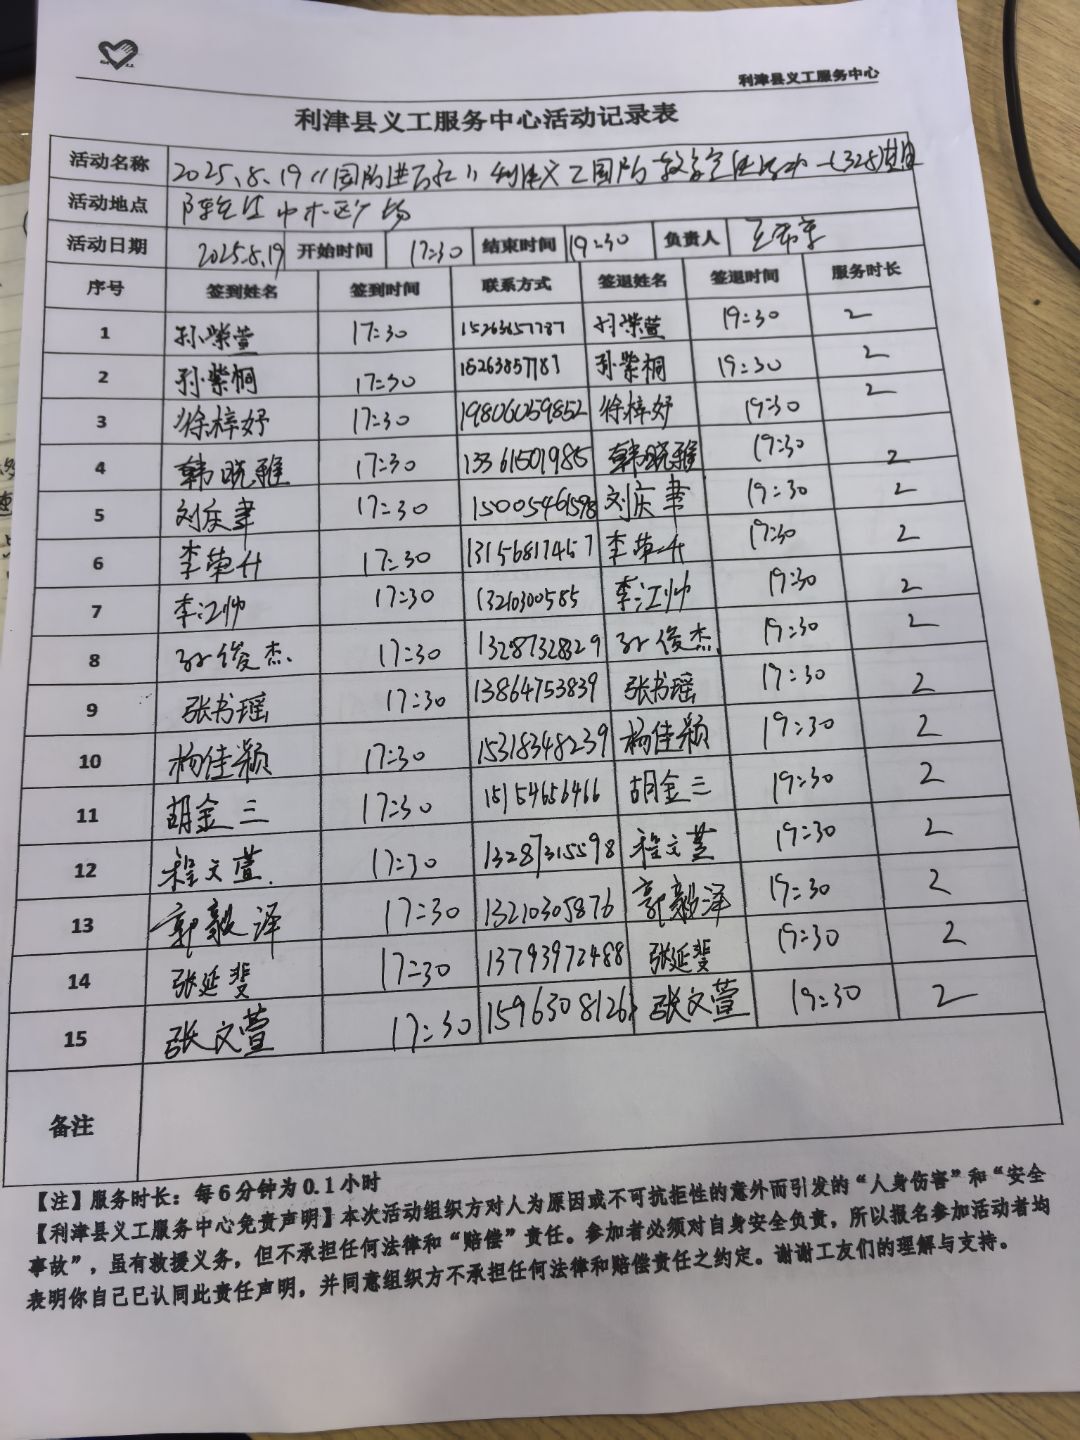 利津县义工服务中心
利津县义工服务中心活动记录表
活动名称 2025.8.19《国防进百社》利津义工国防教育宣传活动
活动地点 陈庄镇中心广场
活动日期 2025.8.19 开始时间 17:30 结束时间 19:30 负责人
序号 签到姓名 签到时间 联系方式 签退姓名 签退时间 服务时长
1 孙紫萱 17:30 孙紫萱 19:30 2
2 孙紫桐 17:30 15263857787 孙紫桐 19:30 2
3 徐梓妤 17:30 19806059852 徐梓妤 19:30 2
4 韩晓雅 17:30 13361501985 韩晓雅 19:30 2
5 刘庆聿 17:30 15005461598 刘庆聿 19:30 2
6 李荣升 17:30 13156817457 李荣升 19:30 2
7 李江帅 17:30 13210300585 李江帅 19:30 2
8 孙俊杰 17:30 13287328829 孙俊杰 19:30 2
9 张书瑶 17:30 13864753839 张书瑶 19:30 2
10 杨佳颖 17:30 15318348239 杨佳颖 19:30 2
11 胡金三 17:30 15154656466 胡金三 19:30 2
12 程文萱 17:30 13287315598 程文萱 19:30 2
13 郭毅泽 17:30 13210305876 郭毅泽 19:30 2
14 张延斐 17:30 13793972488 张延斐 19:30 2
15 张文萱 17:30 15963081261 张文萱 19:30 2
备注
【注】服务时长：每6分钟为0.1小时
【利津县义工服务中心免责声明】本次活动组织方对人为原因或不可抗拒性的意外而引发的“人身伤害”和“安全
事故”，虽有救援义务，但不承担任何法律和“赔偿”责任。参加者必须对自身安全负责，所以报名参加活动者均
表明你自己已认同此责任声明，并同意组织方不承担任何法律和赔偿责任之约定。谢谢工友们的理解与支持。